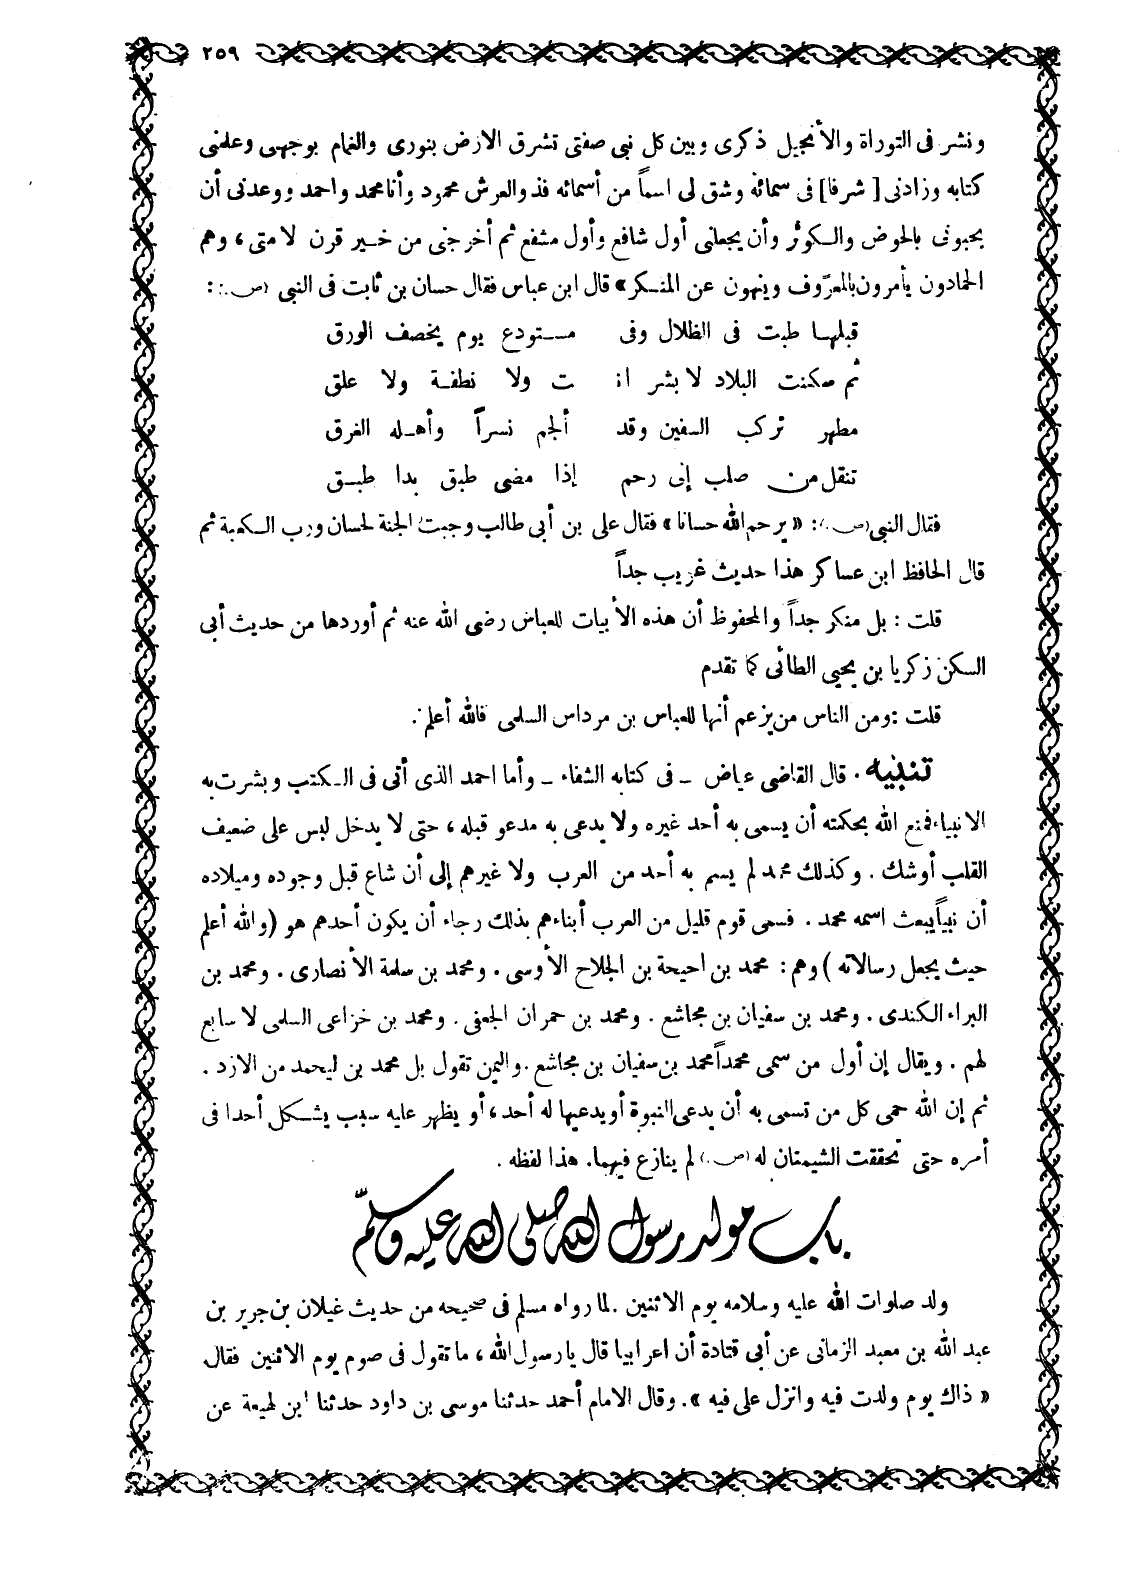 ٢٥٩
ونشر فى التوراة والأنجيل ذكرى وبين كل نبى صفتى تشرق الارض بنورى والغمام بوجهى وعلمنى
كتابه وزادنى [ شرفا] فى سمائه وشق لى اسماً من أسمائه فذو العرش محمود وأنا محمد واحمد ووعدنى أن
يحبونى بالحوض والكوثر وأن يجعلنى أول شافع وأول مشفع ثم أخرجنى من خير قرن لا متى ، وهم
الحمادون يأمرون بالمعروف وينهون عن المنكر» قال ابن عباس فقال حسان بن ثابت فى النبى (ص) :
قبلها طبت فى الظلال وفى مستودع يوم يخصف الورق
ثم سكنت البلاد لا بشر انـ ـت ولا نطفة ولا علق
مطهر تركب السفين وقد ألجم نسراً وأهله الغرق
تنقل من صلب إلى رحم إذا مضى طبق بدا طبق
فقال النبى (ص) : « يرحم الله حسانا » فقال على بن أبى طالب وجبت الجنة لحسان ورب الكعبة ثم
قال الحافظ ابن عساكر هذا حديث غريب جداً
قلت : بل منكر جداً والمحفوظ أن هذه الأبيات للعباس رضى الله عنه ثم أوردها من حديث أبى
السكن زكريا بن يحيى الطائى كما تقدم
قلت : ومن الناس من يزعم أنها للعباس بن مرداس السلمى فالله أعلم .
تنبيه . قال القاضى عياض ـ فى كتابه الشفاء ـ وأما احمد الذى أتى فى الكتب وبشرت به
الانبياء فمنع الله بحكمته أن يسمى به أحد غيره ولا يدعى به مدعو قبله ، حتى لا يدخل لبس على ضعيف
القلب أو شك . وكذلك محمد لم يسم به أحد من العرب ولا غيرهم إلى أن شاع قبل وجوده وميلاده
أن نبياً يبعث اسمه محمد . فسمى قوم قليل من العرب أبناءهم بذلك رجاء أن يكون أحدهم هو (والله أعلم
حيث يجعل رسالاته ) وهم : محمد بن احيحة بن الجلاح الأوسى . ومحمد بن سلمة الأنصارى . ومحمد بن
البراء الكندى . ومحمد بن سفيان بن مجاشع . ومحمد بن حمران الجعفى . ومحمد بن خزاعى السلمى لا سابع
لهم . ويقال إن أول من سمى محمداً محمد بن سفيان بن مجاشع . واليمن تقول بل محمد بن ليحمد من الازد .
ثم إن الله حمى كل من تسمى به أن يدعى النبوة أو يدعيها له أحد ، أو يظهر عليه سبب يشكل أحدا فى
أمره حتى تحققت الشيمتان له (ص) لم ينازع فيهما . هذا لفظه .
باب مولد رسول الله صلى الله عليه وسلم
ولد صلوات الله عليه وسلامه يوم الاثنين . لما رواه مسلم فى صحيحه من حديث غيلان بن جرير بن
عبد الله بن معبد الزمانى عن أبى قتادة أن اعرابيا قال يا رسول الله ، ما تقول فى صوم يوم الاثنين فقال
« ذاك يوم ولدت فيه وانزل على فيه ». وقال الامام أحمد حدثنا موسى بن داود حدثنا ابن لهيعة عن